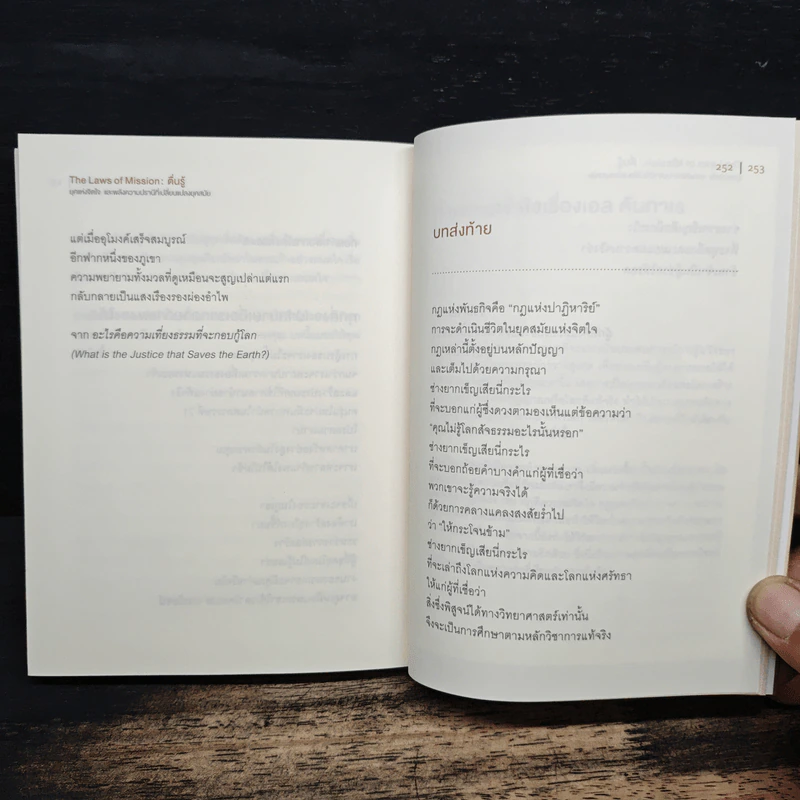 The Laws of Mission : ตื่นรู้
ยุคแห่งจิตใจ และพลังความปรารถนาที่เปลี่ยนแปลงยุคสมัย
แต่เมื่ออุโมงค์เสร็จสมบูรณ์
อีกฟากหนึ่งของภูเขา
ความพยายามทั้งมวลที่ดูเหมือนจะสูญเปล่าแต่แรก
กลับกลายเป็นแสงเรืองรองผ่องอำไพ
จาก อะไรคือความเที่ยงธรรมที่จะกอบกู้โลก
(What is the Justice that Saves the Earth?)
252 | 253
บทส่งท้าย
กฎแห่งพันธกิจคือ "กฎแห่งปาฏิหาริย์"
การจะดำเนินชีวิตในยุคสมัยแห่งจิตใจ
กฎเหล่านี้ตั้งอยู่บนหลักปัญญา
และเต็มไปด้วยความกรุณา
ช่างยากเข็ญเสียนี่กระไร
ที่จะบอกแก่ผู้ซึ่งดวงตามองเห็นแต่ข้อความว่า
"คุณไม่รู้โลกสัจธรรมอะไรนั้นหรอก"
ช่างยากเข็ญเสียนี่กระไร
ที่จะบอกถ้อยคำบางคำแก่ผู้ที่เชื่อว่า
พวกเขาจะรู้ความจริงได้
ก็ด้วยการคลางแคลงสงสัยร่ำไป
ว่า "ให้กระโจนข้าม"
ช่างยากเข็ญเสียนี่กระไร
ที่จะเล่าถึงโลกแห่งความคิดและโลกแห่งศรัทธา
ให้แก่ผู้ที่เชื่อว่า
สิ่งซึ่งพิสูจน์ได้ทางวิทยาศาสตร์เท่านั้น
จึงจะเป็นการศึกษาตามหลักวิชาการแท้จริง